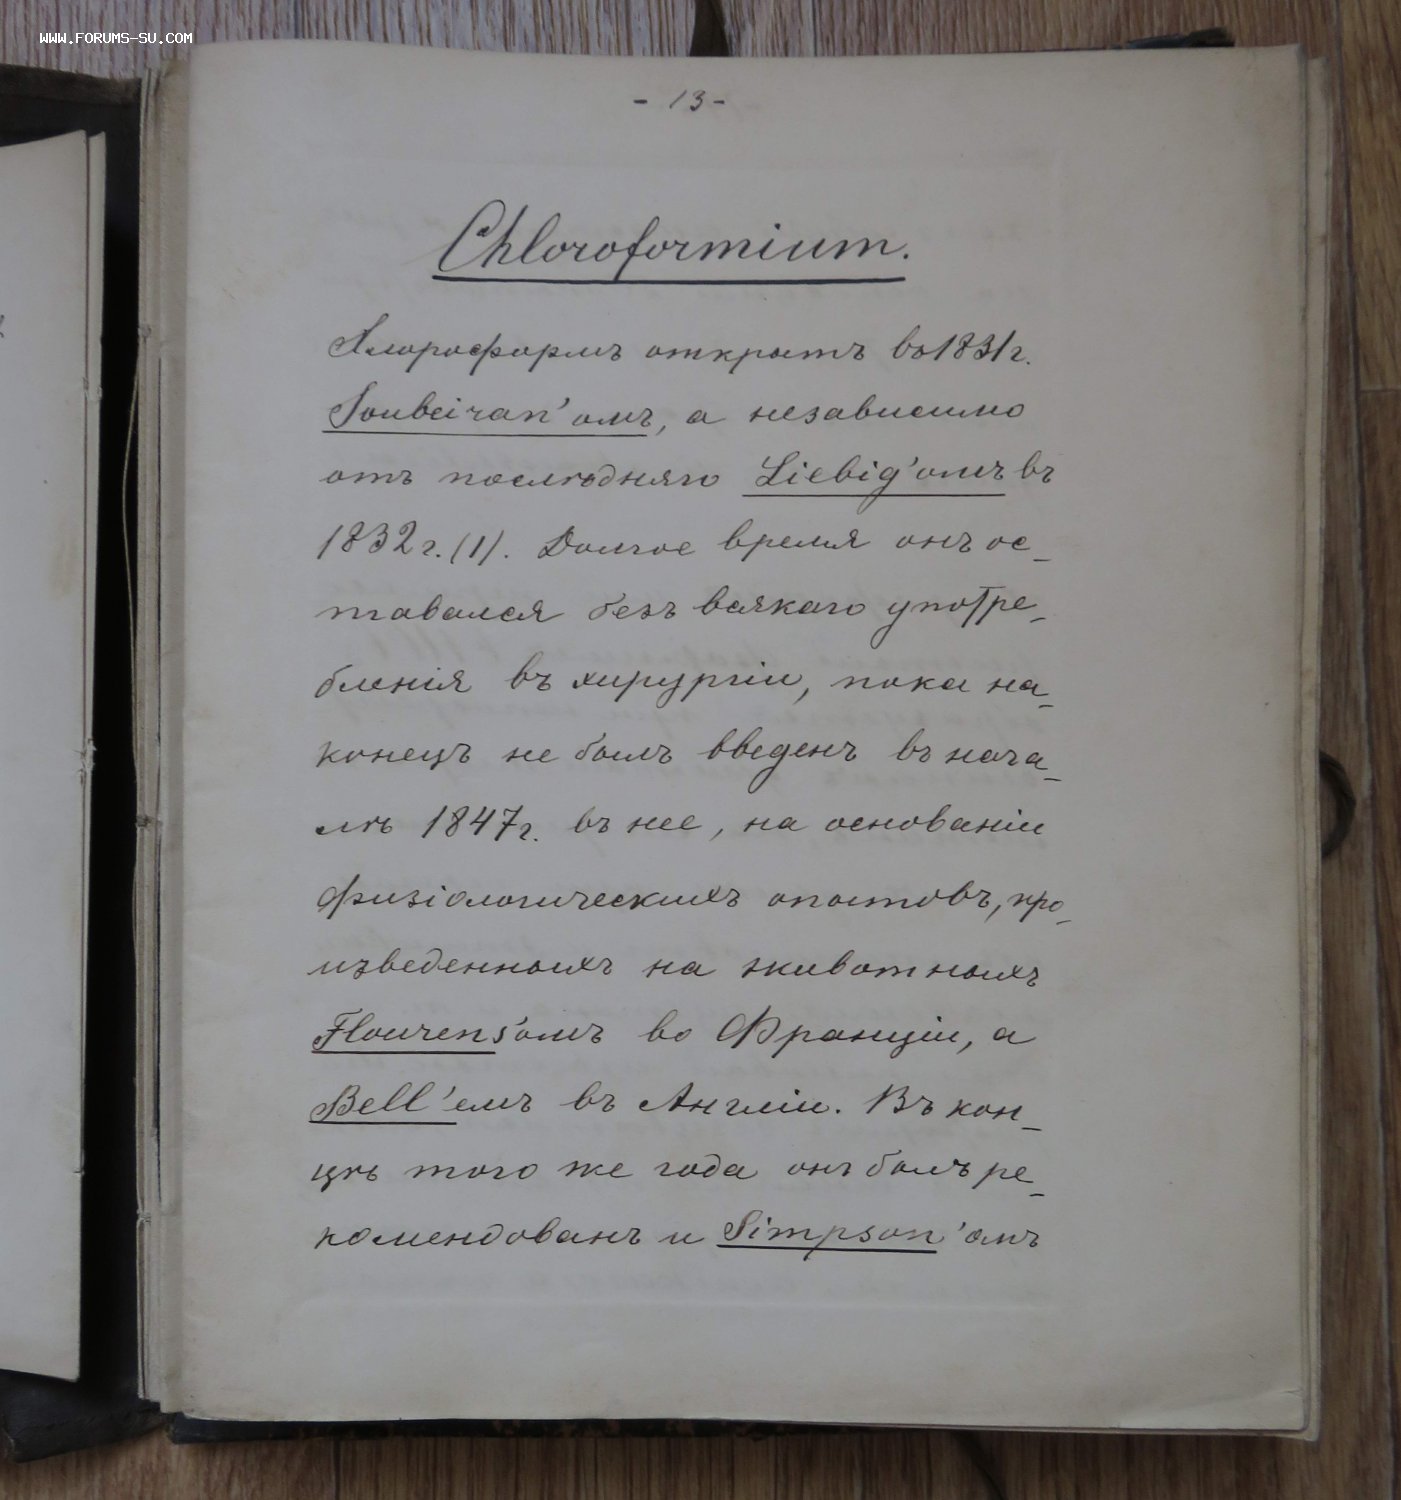 WWW.FORUMS-SU.COM
- 13 -
Chloroformium.
Хлороформъ открытъ въ 1831 г.
Soubeiran'омъ, а независимо
отъ послѣдняго Liebig'омъ въ
1832 г. (1). Долгое время онъ ос-
тавался безъ всякаго употре-
бленія въ хирургіи, пока на-
конецъ не былъ введенъ въ нача-
лѣ 1847 г. въ нее, на основаніи
физіологическихъ опытовъ, про-
изведенныхъ на животныхъ
Flourens'омъ во Франціи, а
Bell'емъ въ Англіи. Въ кон-
цѣ того же года онъ былъ ре-
комендованъ и Simpson'омъ